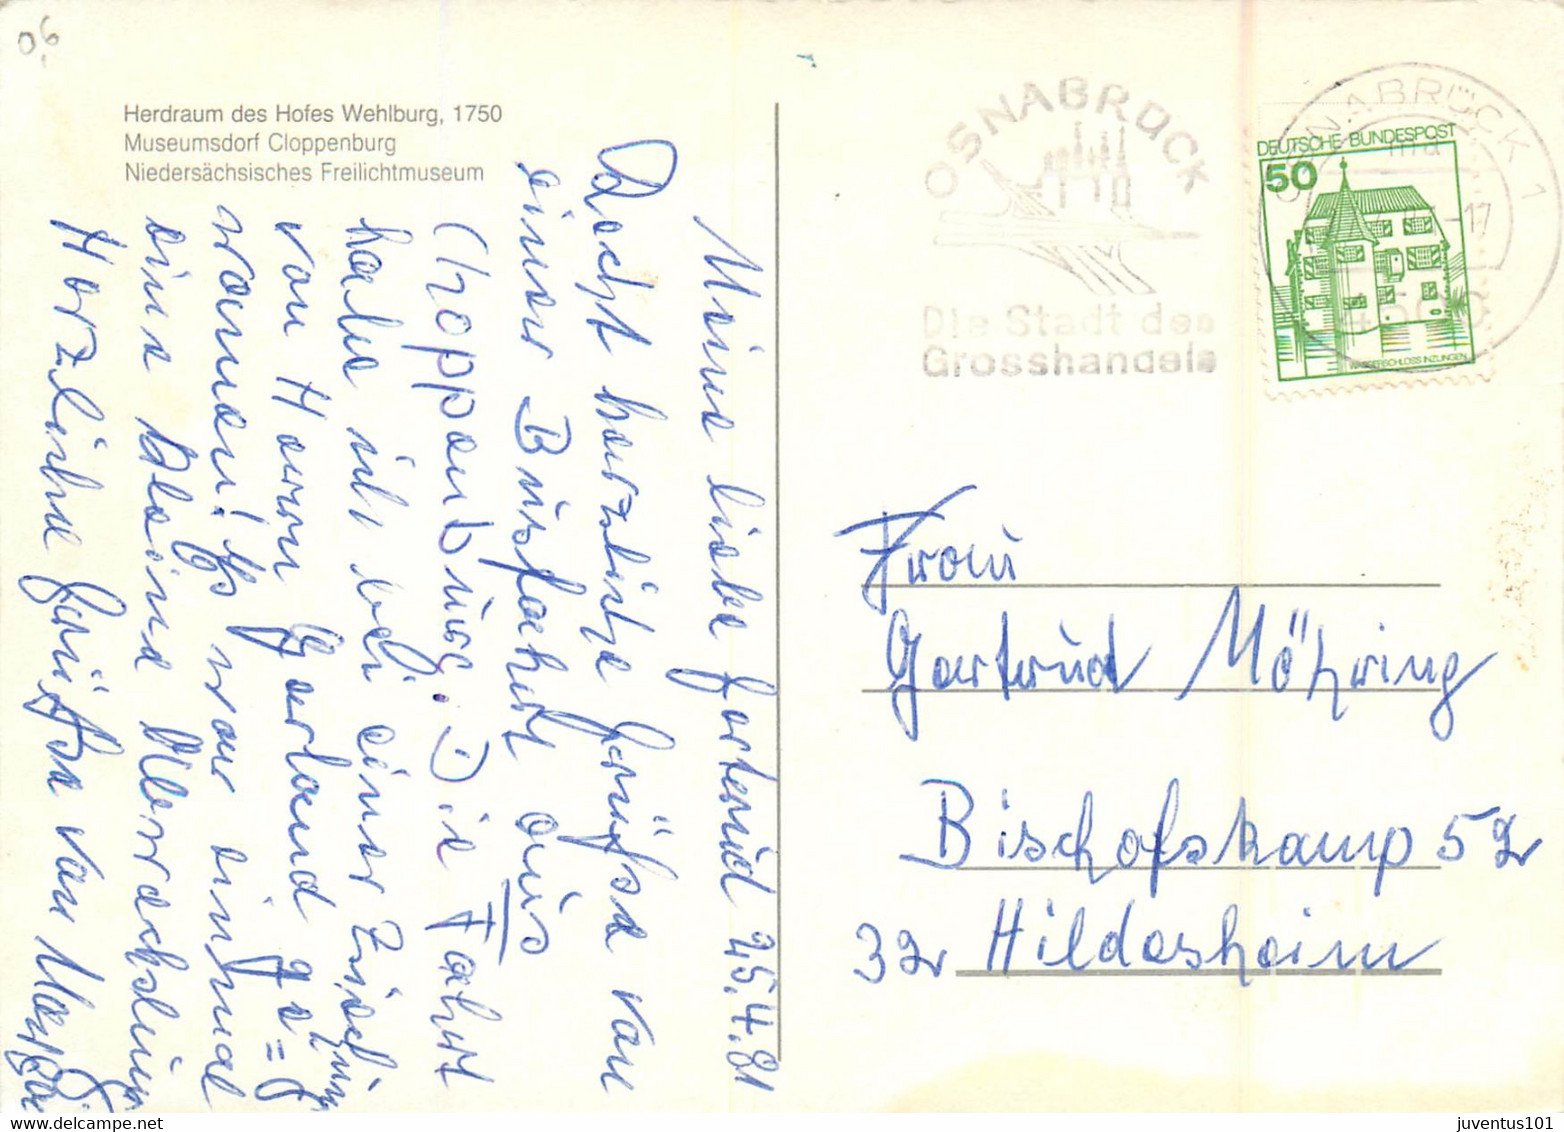 06
Herdraum des Hofes Wehlburg, 1750
Museumsdorf Cloppenburg
Niedersächsisches Freilichtmuseum
Meine liebe Gertrud 25.4.81
Recht herzliche Grüße von
einer Busfahrt aus
Choppenburg. Die Fahrt
habe ich bei einer Ziehung
von Herrn Gerland ge=
wonnen! Es war einmal
eine kleine Abwechslung
Herzliche Grüße von
OSNABRÜCK
Die Stadt des
Grosshandels
OSNABRÜCK 1
-17
DEUTSCHE BUNDESPOST
50
WASSERSCHLOSS INZLINGEN
Frau
Gertrud Möhring
Bischofskamp 52
32 Hildesheim
juventus101